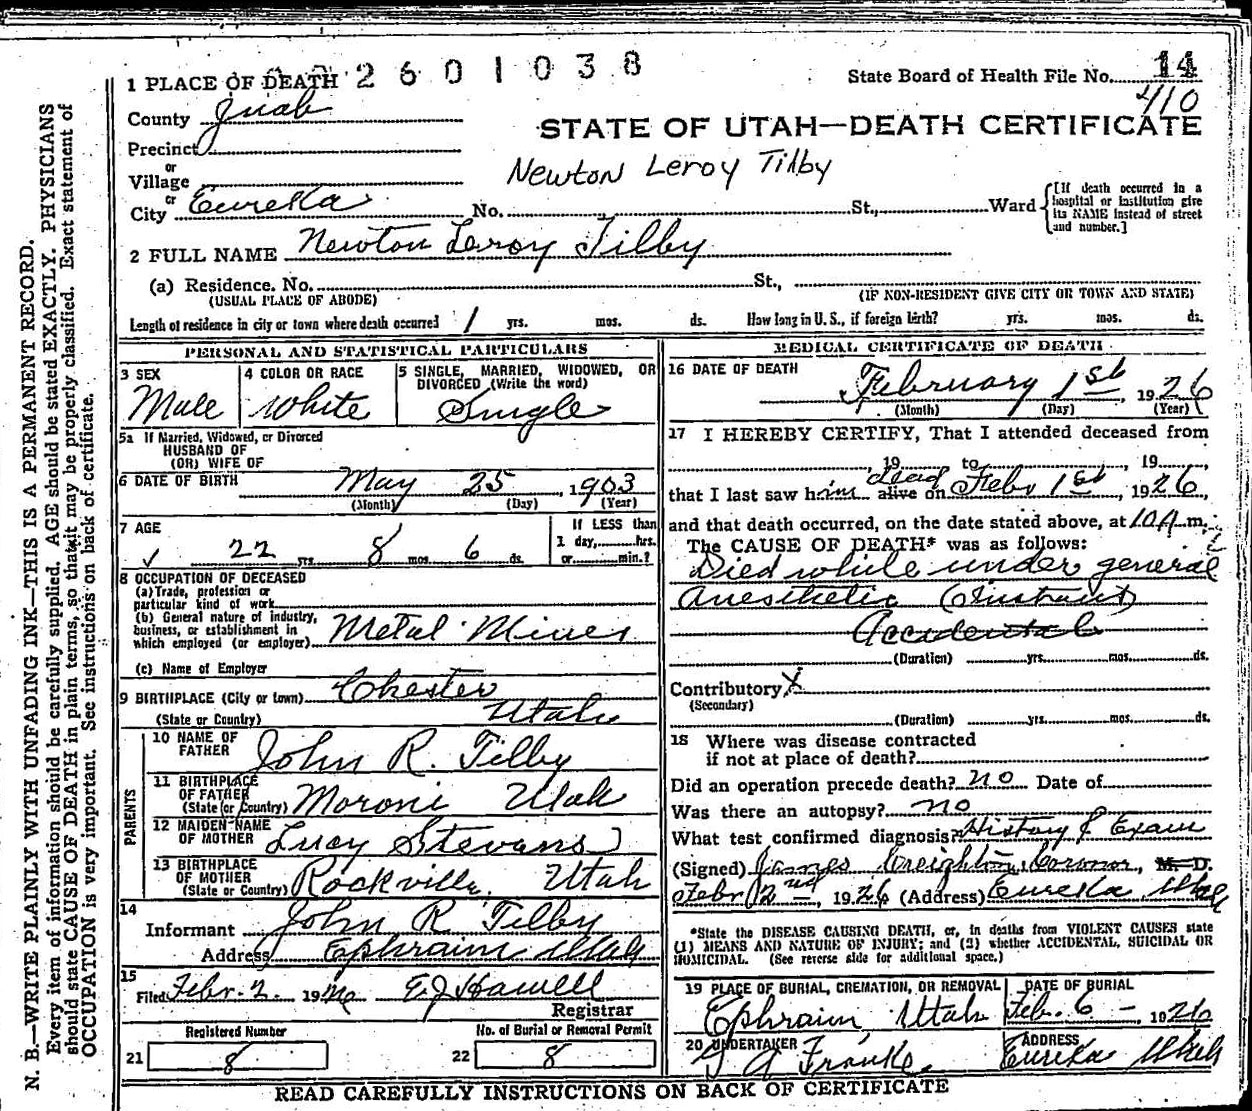 N. B.—WRITE PLAINLY WITH UNFADING INK—THIS IS A PERMANENT RECORD.
Every item of information should be carefully supplied. AGE should be stated EXACTLY. PHYSICIANS
should state CAUSE OF DEATH in plain terms, so that it may be properly classified. Exact statement of
OCCUPATION is very important. See instructions on back of certificate.
1 PLACE OF DEATH 2601038
State Board of Health File No. 14
410
County Juab
STATE OF UTAH—DEATH CERTIFICATE
Precinct
or
Village
Newton Leroy Tilby
or
City Eureka No. St., Ward
[If death occurred in a
hospital or institution give
its NAME instead of street
and number.]
2 FULL NAME Newton Leroy Tilby
(a) Residence. No. St.,
(USUAL PLACE OF ABODE) (IF NON-RESIDENT GIVE CITY OR TOWN AND STATE)
Length of residence in city or town where death occurred 1 yrs. mos. ds. How long in U. S., if foreign birth? yrs. mos. ds.
PERSONAL AND STATISTICAL PARTICULARS
3 SEX
Male
4 COLOR OR RACE
White
5 SINGLE, MARRIED, WIDOWED, OR
DIVORCED (Write the word)
Single
5a If Married, Widowed, or Divorced
HUSBAND OF
(OR) WIFE OF
6 DATE OF BIRTH May 25, 1903
(Month) (Day) (Year)
7 AGE
22 yrs 8 mos. 6 ds.
If LESS than
1 day, hrs.
or min.?
8 OCCUPATION OF DECEASED
(a) Trade, profession or
particular kind of work
(b) General nature of industry,
business, or establishment in
which employed (or employer) Metal Miner
(c) Name of Employer
9 BIRTHPLACE (City or town) Chester
(State or Country) Utah
PARENTS
10 NAME OF
FATHER John R. Tilby
11 BIRTHPLACE
OF FATHER
(State or Country) Moroni Utah
12 MAIDEN NAME
OF MOTHER Lucy Stevans
13 BIRTHPLACE
OF MOTHER
(State or Country) Rockville, Utah
14
Informant John R Tilby
Address Ephraim Utah
15
Filed Febr. 2. 19 E. J. Howell
Registrar
Registered Number
21 8
No. of Burial or Removal Permit
22 8
MEDICAL CERTIFICATE OF DEATH
16 DATE OF DEATH February 1st, 1926
(Month) (Day) (Year)
17 I HEREBY CERTIFY, That I attended deceased from
, 19 to , 19 ,
dead
that I last saw him alive on Febr 1st, 1926,
and that death occurred, on the date stated above, at 10 A m.
The CAUSE OF DEATH* was as follows:
Died while under general
Anesthetic
Accidental
(Duration) yrs. mos. ds.
Contributory X
(Secondary)
(Duration) yrs. mos. ds.
18 Where was disease contracted
if not at place of death?
Did an operation precede death? no Date of
Was there an autopsy? no
What test confirmed diagnosis? History & Exam
(Signed) James Creighton, Coronor, M. D.
Febr 2nd, 1926 (Address) Eureka Utah
*State the DISEASE CAUSING DEATH, or, in deaths from VIOLENT CAUSES state
(1) MEANS AND NATURE OF INJURY; and (2) whether ACCIDENTAL, SUICIDAL OR
HOMICIDAL. (See reverse side for additional space.)
19 PLACE OF BURIAL, CREMATION, OR REMOVAL
Ephraim, Utah
DATE OF BURIAL
Feb. 6 1926
20 UNDERTAKER
Franke
ADDRESS
Eureka Utah
READ CAREFULLY INSTRUCTIONS ON BACK OF CERTIFICATE